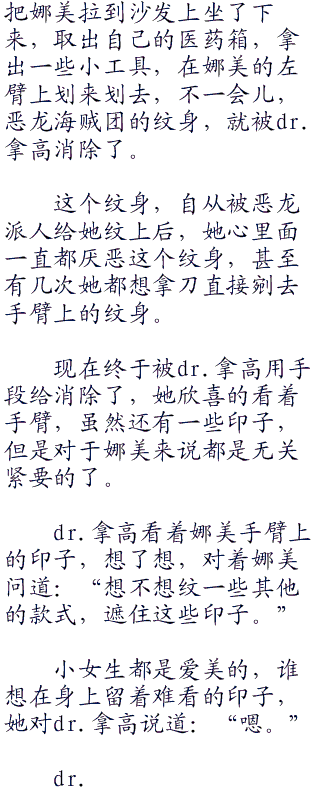 把娜美拉到沙发上坐了下
来，取出自己的医药箱，拿
出一些小工具，在娜美的左
臂上划来划去，不一会儿，
恶龙海贼团的纹身，就被dr.
拿高消除了。
这个纹身，自从被恶龙
派人给她纹上后，她心里面
一直都厌恶这个纹身，甚至
有几次她都想拿刀直接剜去
手臂上的纹身。
现在终于被dr.拿高用手
段给消除了，她欣喜的看着
手臂，虽然还有一些印子，
但是对于娜美来说都是无关
紧要的了。
dr.拿高看着娜美手臂上
的印子，想了想，对着娜美
问道：“想不想纹一些其他
的款式，遮住这些印子。”
小女生都是爱美的，谁
想在身上留着难看的印子，
她对dr.拿高说道：“嗯。”
dr.